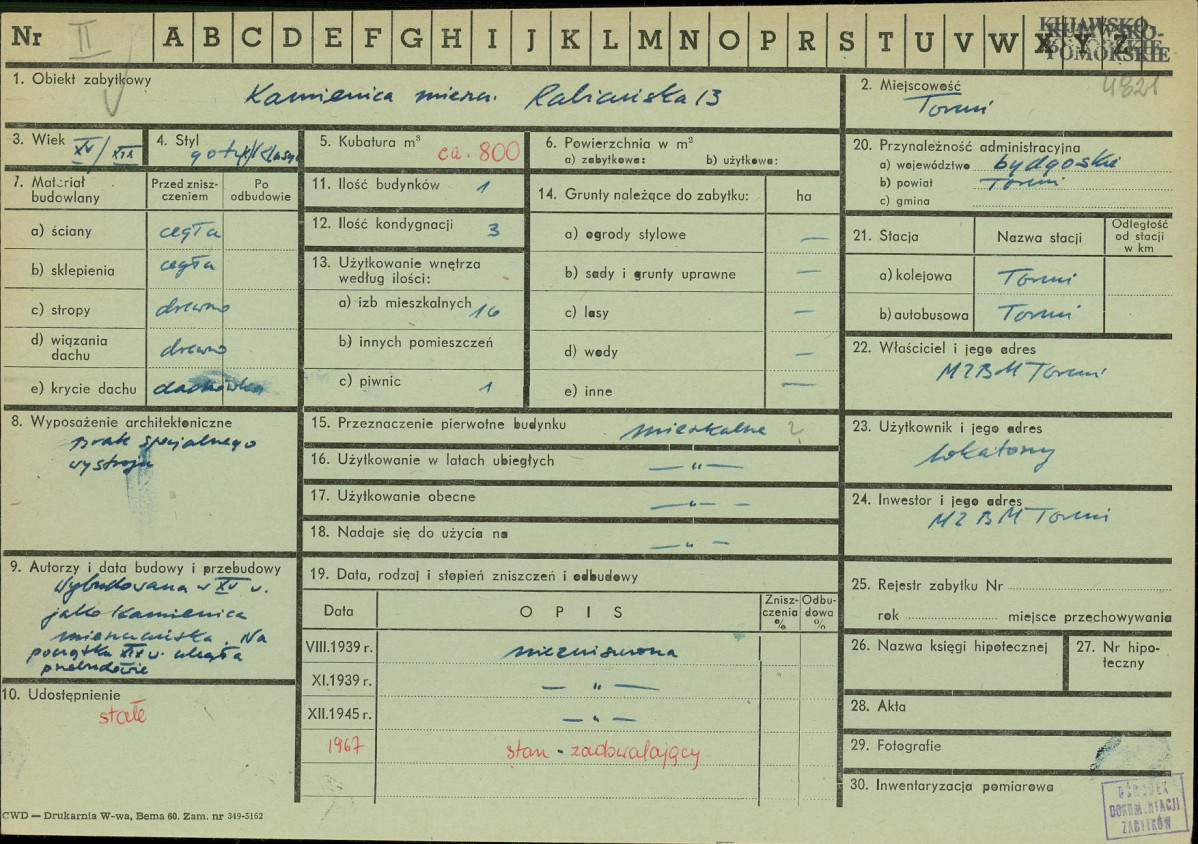 Nr II A B C D E F G H I J K L M N O P R S T U V W X Y Z
KUJAWSKO-
POMORSKIE
4821
1. Obiekt zabytkowy
Kamienica mieszcz. Rabiańska 13
2. Miejscowość
Toruń
3. Wiek XV/XIX
4. Styl gotyk/klasyc
5. Kubatura m³ ca. 800
6. Powierzchnia w m²
a) zabytkowa: b) użytkowa:
7. Materiał budowlany
Przed zniszczeniem
Po odbudowie
a) ściany cegła
b) sklepienia cegła
c) stropy drewno
d) wiązania dachu drewno
e) krycie dachu dachówka
8. Wyposażenie architektoniczne
brak specjalnego
wystroju
9. Autorzy i data budowy i przebudowy
Wybudowana w XV w.
jako kamienica
mieszczańska. Na
początku XIX w. uległa
przebudowie
10. Udostępnienie
stałe
11. Ilość budynków 1
12. Ilość kondygnacji 3
13. Użytkowanie wnętrza według ilości:
a) izb mieszkalnych 16
b) innych pomieszczeń
c) piwnic 1
14. Grunty należące do zabytku: ha
a) ogrody stylowe —
b) sady i grunty uprawne —
c) lasy —
d) wody —
e) inne —
15. Przeznaczenie pierwotne budynku mieszkalne ?
16. Użytkowanie w latach ubiegłych — „ —
17. Użytkowanie obecne — „ —
18. Nadaje się do użycia na — „ —
19. Data, rodzaj i stopień zniszczeń i odbudowy
Data OPIS Zniszczenia % Odbudowa %
VIII.1939 r. niezniszczona
XI.1939 r. — „ —
XII.1945 r. — „ —
1967 stan - zadowalający
20. Przynależność administracyjna
a) województwo bydgoskie
b) powiat Toruń
c) gmina
21. Stacja Nazwa stacji Odległość od stacji w km
a) kolejowa Toruń
b) autobusowa Toruń
22. Właściciel i jego adres
MZBM Toruń
23. Użytkownik i jego adres
lokatorzy
24. Inwestor i jego adres
MZBM Toruń
25. Rejestr zabytku Nr
rok miejsce przechowywania
26. Nazwa księgi hipotecznej
27. Nr hipoteczny
28. Akta
29. Fotografie
30. Inwentaryzacja pomiarowa
OŚRODEK
DOKUMENTACJI
ZABYTKÓW
CWD — Drukarnia W-wa, Bema 60. Zam. nr 349-5162